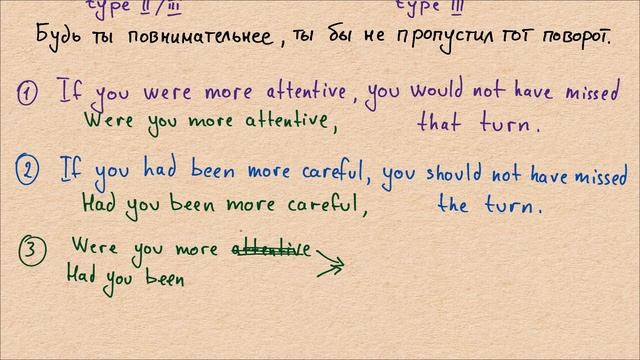 type II/III type III
Будь ты повнимательнее, ты бы не пропустил тот поворот.
① If you were more attentive, you would not have missed
Were you more attentive, that turn.
② If you had been more careful, you should not have missed
Had you been more careful, the turn.
③ Were you more attentive
Had you been